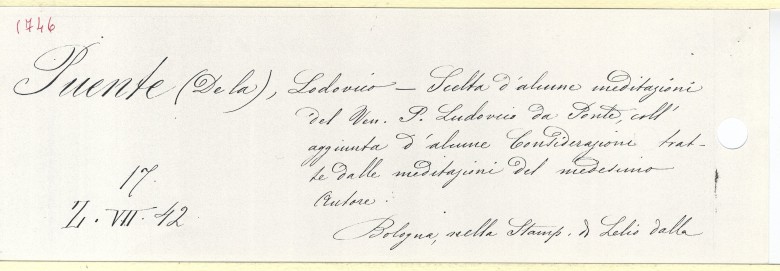 1746
Puente (De la), Lodovico — Scelta d'alcune meditazioni
del Ven. P. Ludovico da Ponte, coll'
aggiunta d'alcune Considerazioni trat-
te dalle meditazioni del medesimo
Autore:
17.
Z. VII. 42
Bologna, nella Stamp. di Lelio dalla